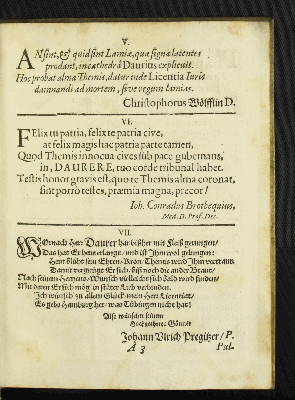 V.
AN sint, & quid sint Lamiæ, qua signa latentes
prodant, in cathedrâ Dauritius explicuit.
Hoc probat alma Themis, datur inde Licentia Iuris
damnandi ad mortem, sive regum lamias.
Christophorus Wölfflin D.
VI.
FElix tu patria, felix te patria cive,
at felix magis hac patria parte tamen,
Quod Themis innocua cives sub pace gubernans,
in, DAURERE, tuo corde tribunal habet.
Testis honor gravis est, quo te Themis alma coronat,
sint porrò testes, præmia magna, precor!
Joh. Conradus Brotbequius,
Med. D. Prof. Dec.
VII.
WOrnach Herr Daurer hat bißher mit Fleiß gerungen/
Das hat Er heut erlangt/ und ist Ihm wol gelungen:
Hier blüht sein Ehren-Kron
Damit
Nach seinem Hamburg/ Wunsch
Mit deren Er sich mög in stäter Lieb verbinden.
Ich wünsch zu allem Glück mein Herr Licentiat/
Es gebs Hamburg her/ was Tübingen nicht hat!
Also wünschet seinem
Hochgeehrten Gönner
Johann Ulrich Pregitzer/ P.
A 3 Pul-